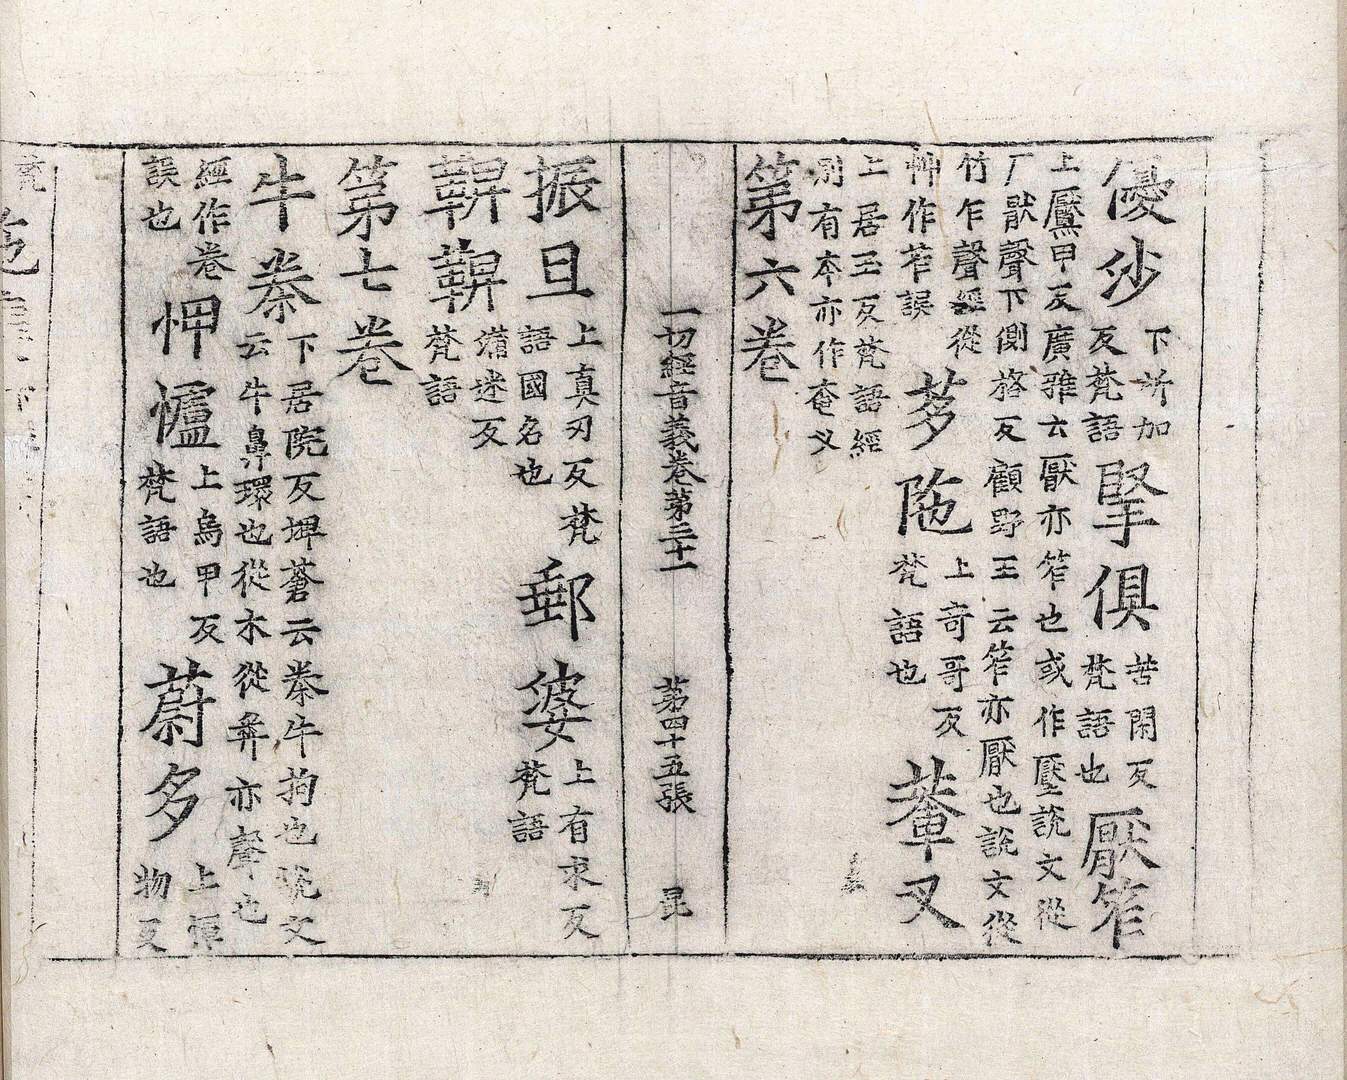 優沙
下所加
反梵語
掔俱
苦閑反
梵語也
厭笮
上黶甲反廣雅云厭亦笮也或作壓說文從
厂猒聲下側格反顧野王云笮亦厭也說文從
竹乍聲經從
艸作苲誤
茤陁
上奇哥反
梵語也
輂叉
上居玉反梵語經
別有本亦作奄义
第六卷
一切經音義卷第三十一 第四十五張 昆
振旦
上真刃反梵
語國名也
郵婆
上有求反
梵語
迷反
梵語
第七卷
牛桊
下居院反埤蒼云桊牛拘也說文
云牛鼻環也從木從𢍏亦聲也
經作卷
誤也
上烏甲反
梵語也
蔚多
上惲
物反
梵